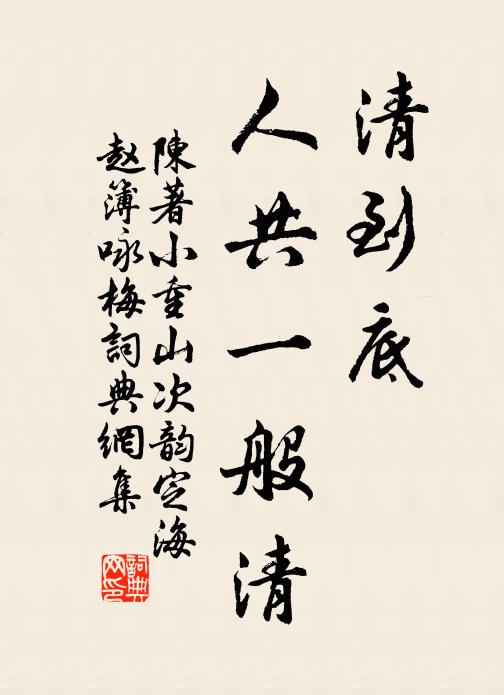 清到底
人共一般清
陳著小重山次韵定海
赵簿咏梅詞典網集
詞典网印